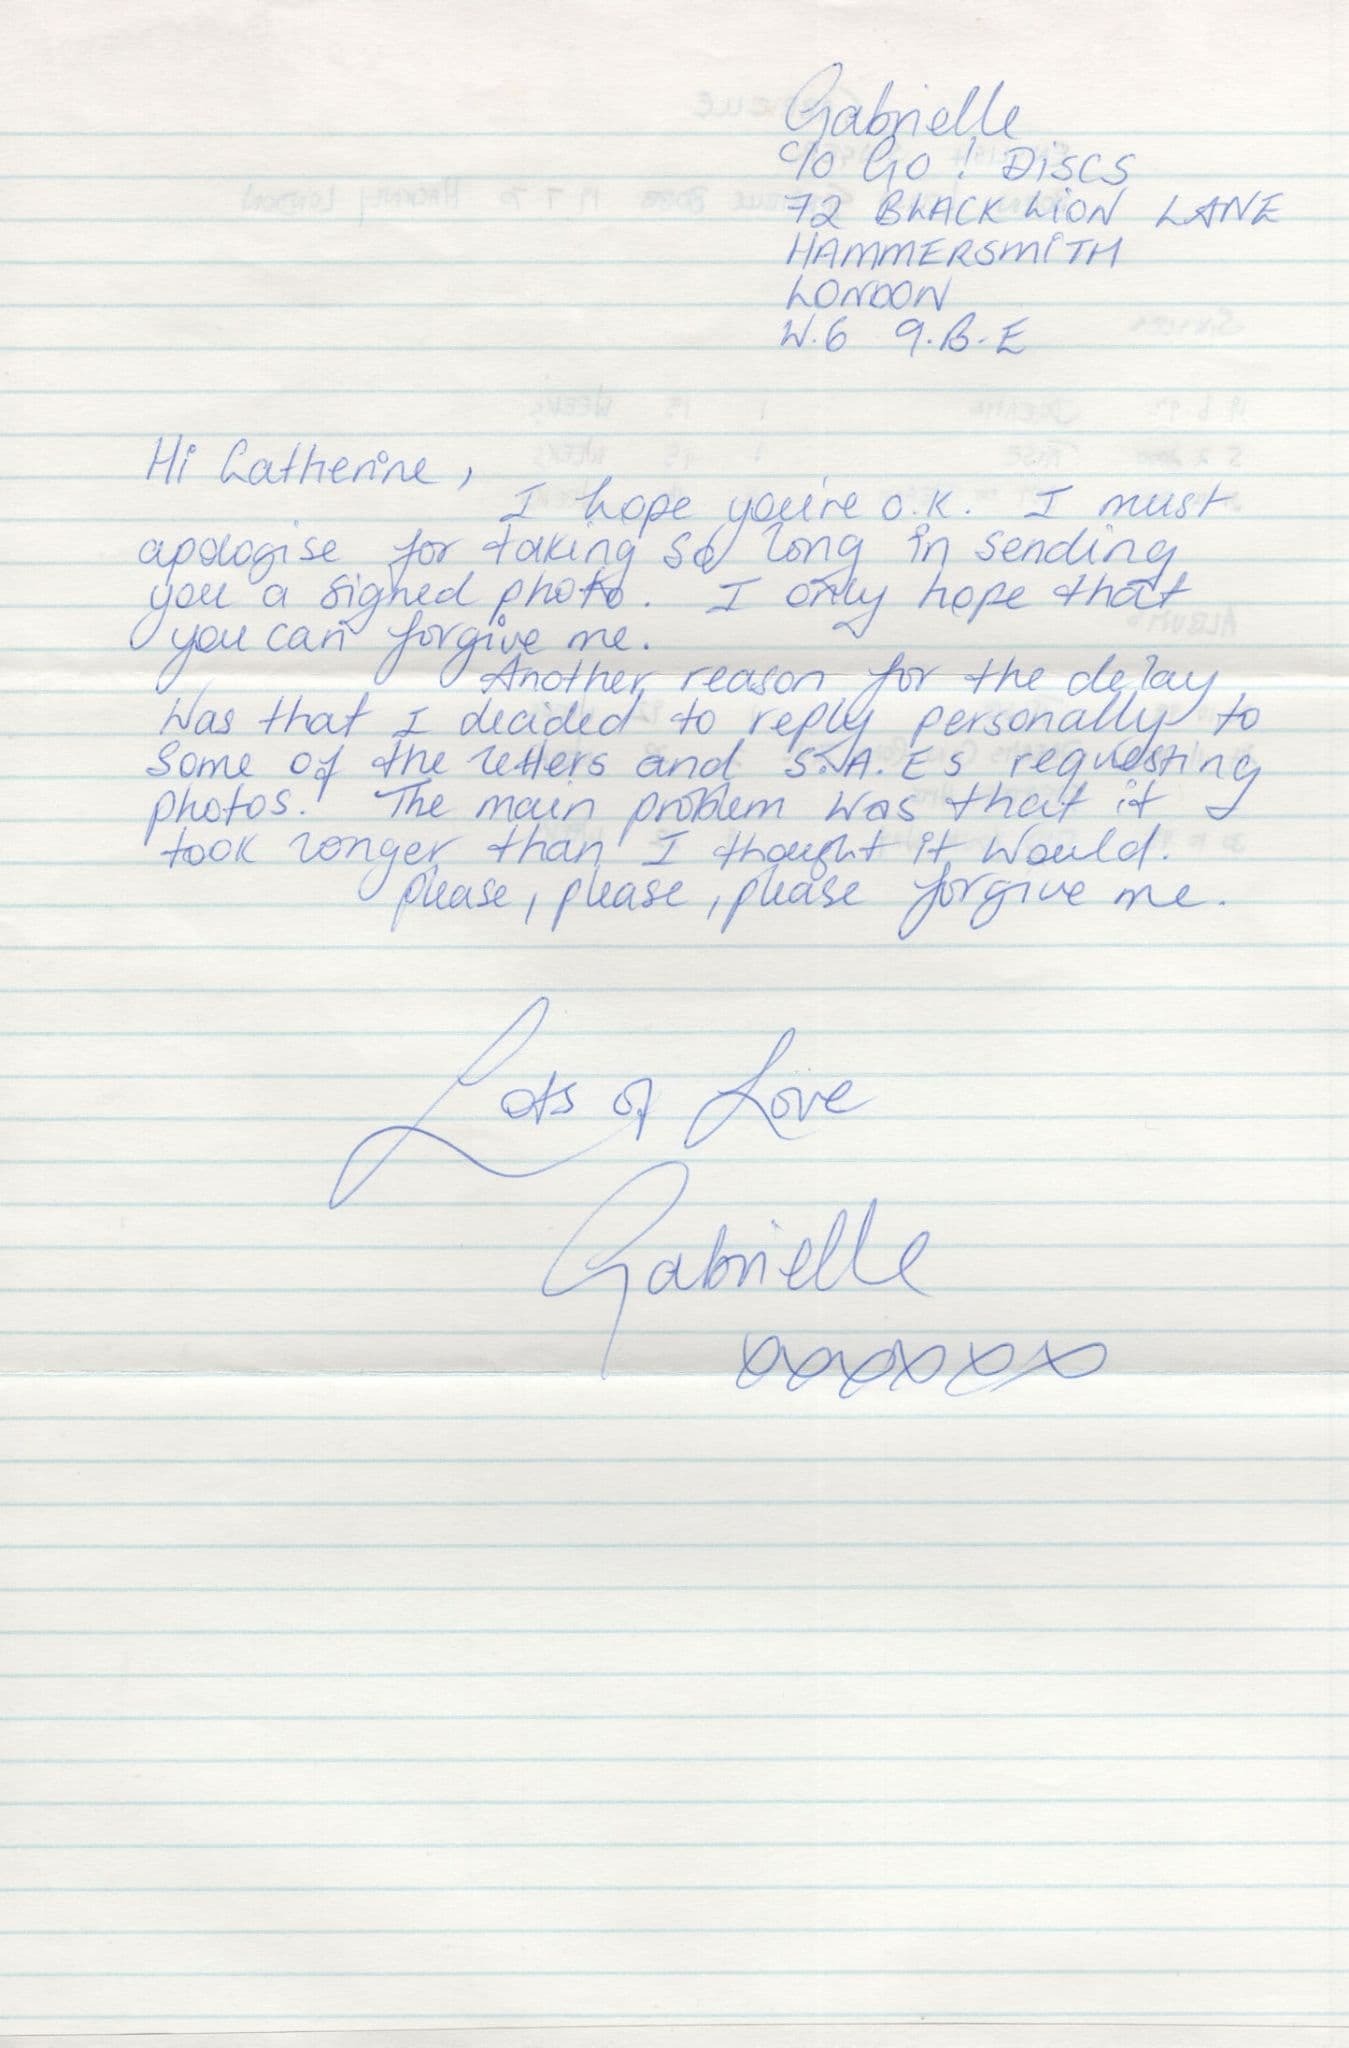 Gabrielle
c/o Go! Discs
72 BLACK LION LANE
HAMMERSMITH
LONDON
W.6 9.B.E
Hi Catherine,
I hope you're O.K. I must
apologise for taking so long in sending
you a signed photo. I only hope that
you can forgive me.
Another reason for the delay
was that I decided to reply personally to
some of the letters and S.A.Es requesting
photos. The main problem was that it
took longer than I thought it would.
please, please, please forgive me.
Lots of Love
Gabrielle
xxxxxx